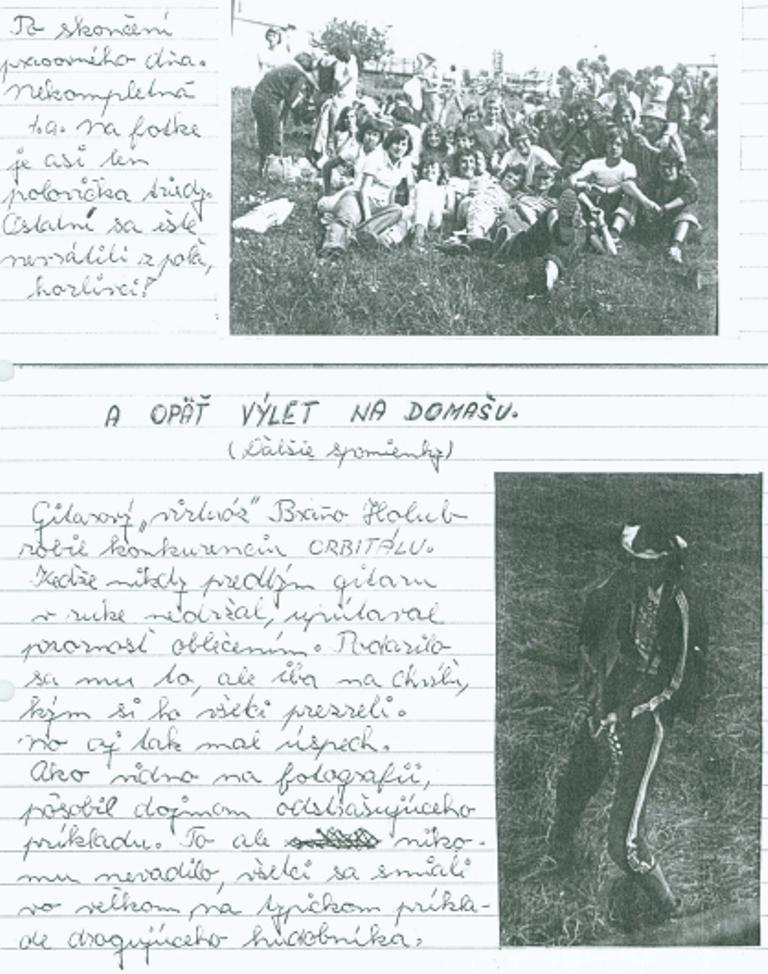 Po skončení
pracovného dňa.
Nekompletná
t.a. na fotke
je asi len
polovička triedy.
Ostatní sa ešte
nevrátili z poľa,
horlivci!
A OPÄŤ VÝLET NA DOMAŠU.
(Ďalšie spomienky)
Gitarový „virtuóz" Braňo Holub
robil konkurenciu ORBITÁLU.
Keďže nikdy predtým gitaru
v ruke nedržal, upútaval
pozornosť oblečením. Podarilo
sa mu to, ale iba na chvíľu,
kým si ho všetci prezreli.
No aj tak mal úspech.
Ako vidno na fotografii,
pôsobil dojmom odstrašujúceho
príkladu. To ale niko-
mu nevadilo, všetci sa smiali
vo veľkom, na typickom príkla-
de drogujúceho hudobníka.